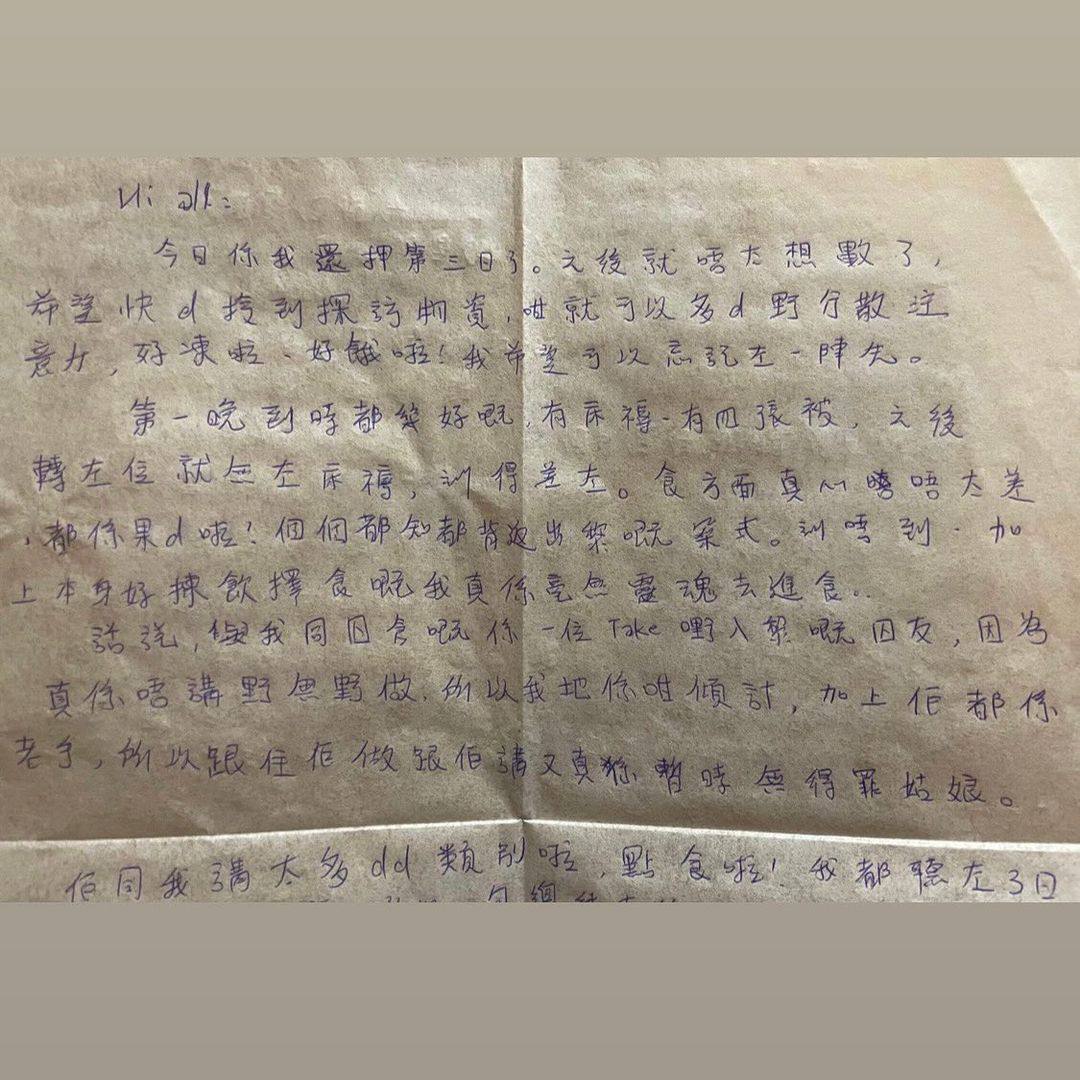 Hi all:
今日係我還押第三日了。之後就唔太想數了,
希望快d接到探訪物資,咁就可以多d野分散注
意力,好凍啦、好餓啦!我希望可以忘記左一陣先。
第一晚到時都幾好嘅,有床褥、有四張被,之後
轉左位就無左床褥,訓得差左。食方面真心唔太差
,都係果d啦!個個都知都背返出黎嘅菜式。訓唔到、加
上本身好揀飲擇食嘅我真係毫無靈魂去進食..
話說,與我同囚倉嘅係一位Take嘢入黎嘅囚友,因為
真係唔講野無野做,所以我地係咁傾計,加上佢都係
老手,所以跟住佢做跟佢講又真係暫時無得罪姑娘。
佢同我講太多dd類別啦,點食啦!我都聽左3日